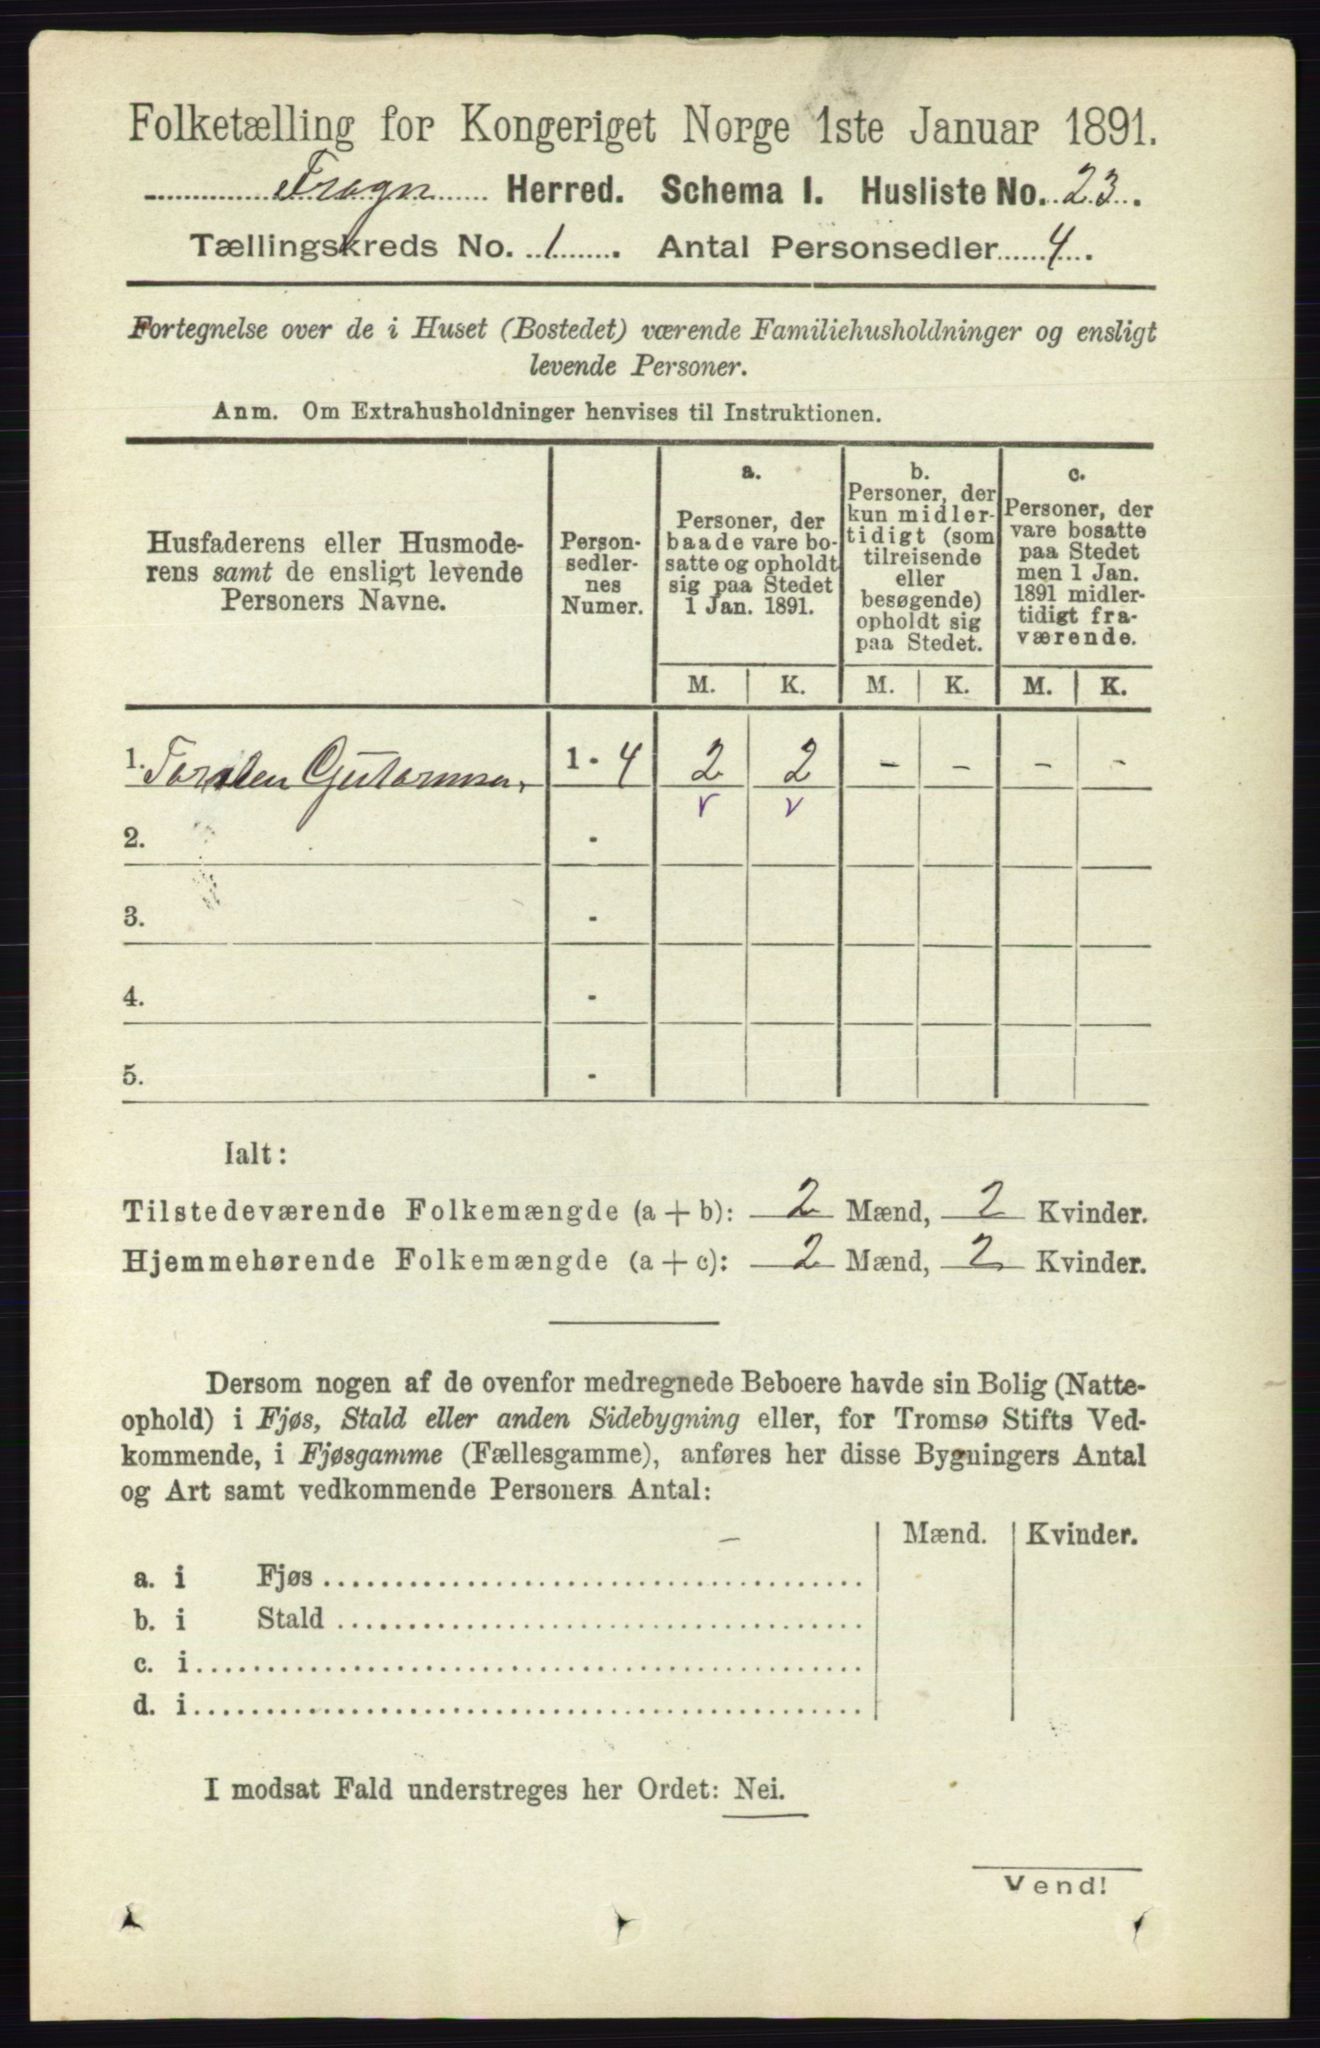 Folketælling for Kongeriget Norge 1ste Januar 1891.
Frogn Herred. Schema I. Husliste No. 23.
Tællingskreds No. 1. Antal Personsedler 4.
Fortegnelse over de i Huset (Bostedet) værende Familiehusholdninger og ensligt
levende Personer.
Anm. Om Extrahusholdninger henvises til Instruktionen.
Husfaderens eller Husmode-
rens samt de ensligt levende
Personers Navne.
Person-
sedler-
nes
Numer.
a.
Personer, der
baade vare bo-
satte og opholdt
sig paa Stedet
1 Jan. 1891.
b.
Personer, der
kun midler-
tidigt (som
tilreisende
eller
besøgende)
opholdt sig
paa Stedet.
c.
Personer, der
vare bosatte
paa Stedet
men 1 Jan.
1891 midler-
tidigt fra-
værende.
M. K. M. K. M. K.
1. Torsten 1 - 4 2 2 - - - -
v v
2. -
3. -
4. -
5. -
Ialt:
Tilstedeværende Folkemængde (a + b): 2 Mænd, 2 Kvinder.
Hjemmehørende Folkemængde (a + c): 2 Mænd, 2 Kvinder.
Dersom nogen af de ovenfor medregnede Beboere havde sin Bolig (Natte-
ophold) i Fjøs, Stald eller anden Sidebygning eller, for Tromsø Stifts Ved-
kommende, i Fjøsgamme (Fællesgamme), anføres her disse Bygningers Antal
og Art samt vedkommende Personers Antal:
Mænd. Kvinder.
a. i Fjøs
b. i Stald
c. i
d. i
I modsat Fald understreges her Ordet: Nei.
Vend!